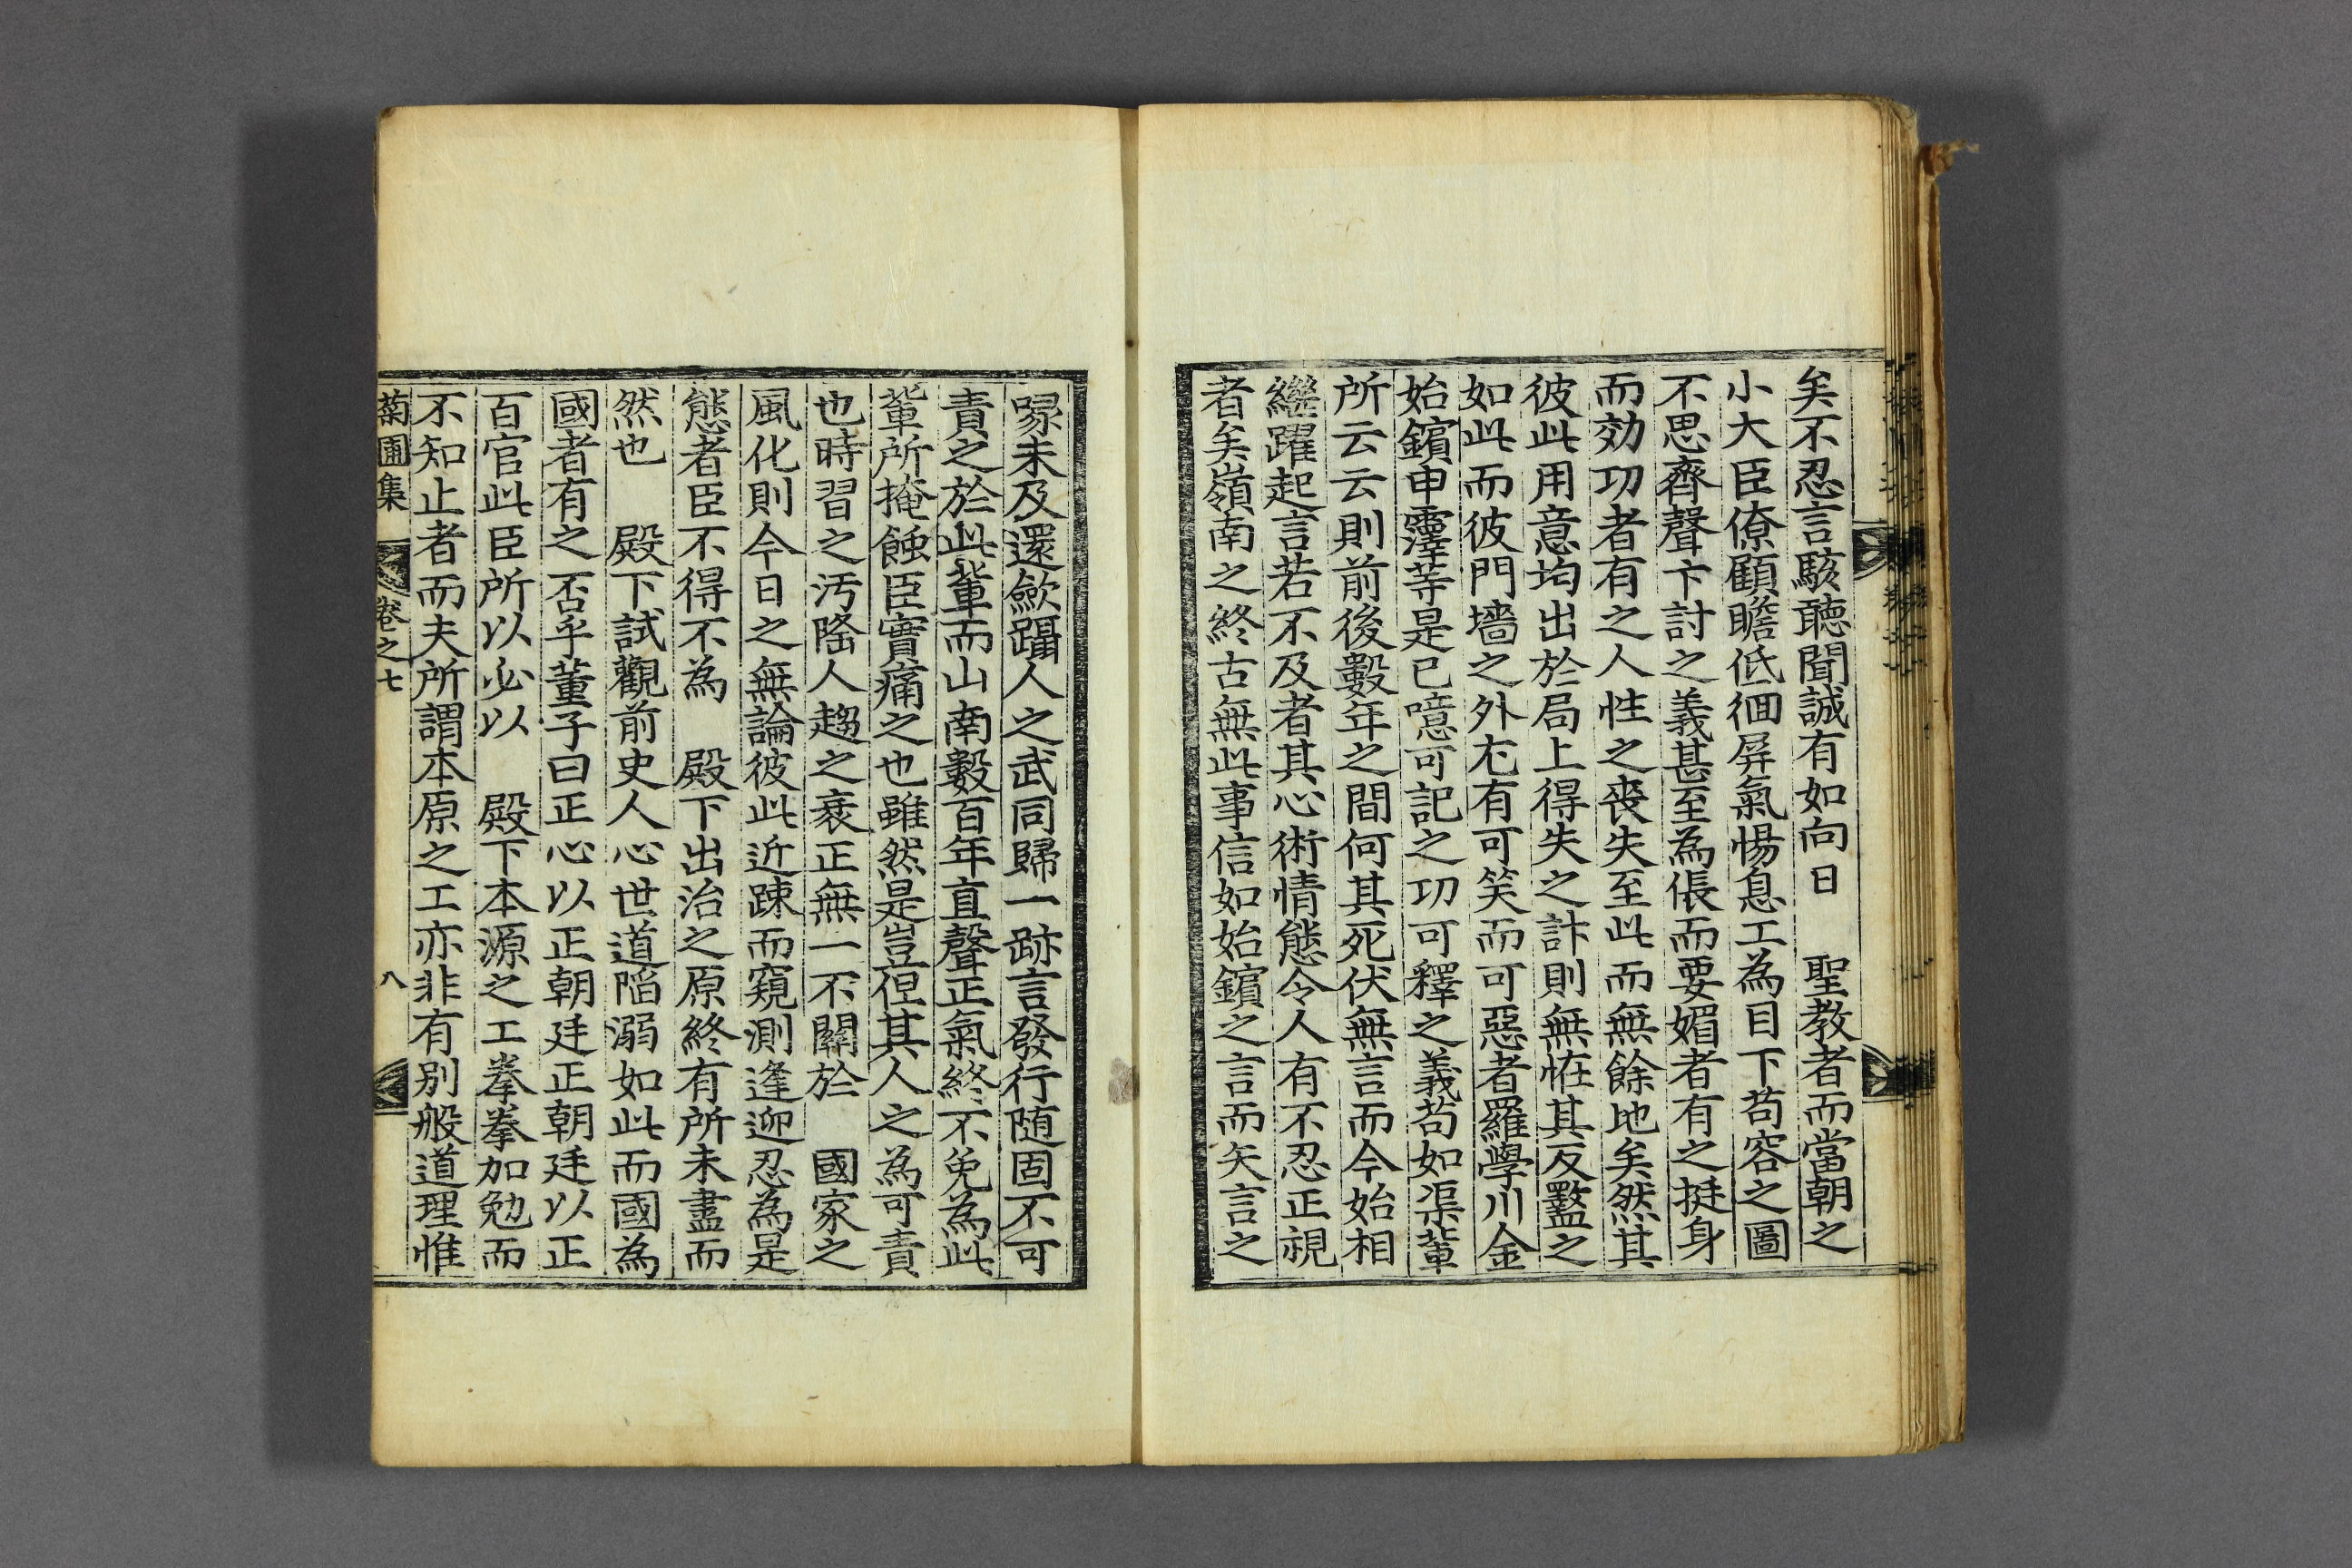 矣不忍言駭聽聞誠有如向日　聖教者而當朝之
小大臣僚顧瞻低徊屏氣惕息工為目下苟容之圖
不思齊聲卞討之義甚至為倀而要媚者有之挺身
而効功者有之人性之喪失至此而無餘地矣然其
彼此用意均出於局上得失之計則無恠其反盭之
如此而彼門墻之外尤有可笑而可惡者羅學川金
始鑌申霔等是已噫可記之功可釋之義苟如渠輩
所云云則前後數年之間何其死伏無言而今始相
繼躍起言若不及者其心術情態令人有不忍正視
者矣嶺南之終古無此事信如始鑌之言而矢言之
喙未及還歛躡人之武同歸一跡言發行随固不可
責之於此輩而山南數百年直聲正氣終不免為此
輩所掩蝕臣實痛之也雖然是豈徑其人之為可責
也時習之汚隆人趨之衰正無一不關於　國家之
風化則今日之無論彼此近踈而窺測逢迎忍為是
態者臣不得不為　殿下出治之原終有所未盡而
然也　殿下試觀前史人心世道陷溺如此而國為
國者有之否乎董子曰正心以正朝廷正朝廷以正
百官此臣所以必以　殿下本源之工拳拳加勉而
不知止者而夫所謂本原之工亦非有别般道理惟
菊圃集　卷之七　八